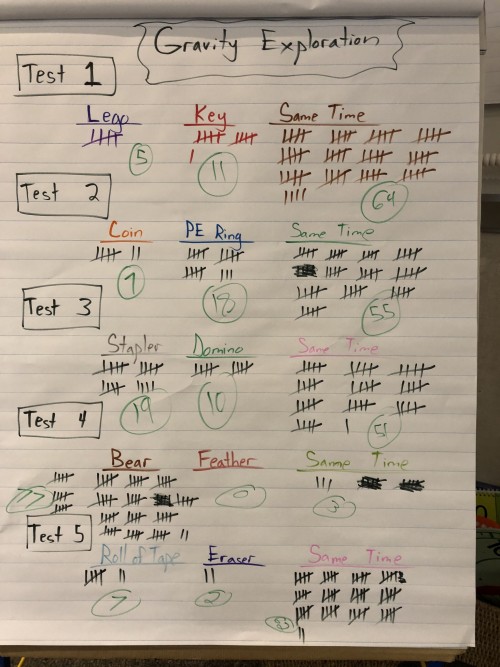 Gravity Exploration
Test 1
Lego Key Same Time
5 11 64
Test 2
Coin PE Ring Same Time
7 18 55
Test 3
Stapler Domino Same Time
19 10 51
Test 4
Bear Feather Same Time
77 0 3
Test 5
Roll of Tape Eraser Same Time
7 2